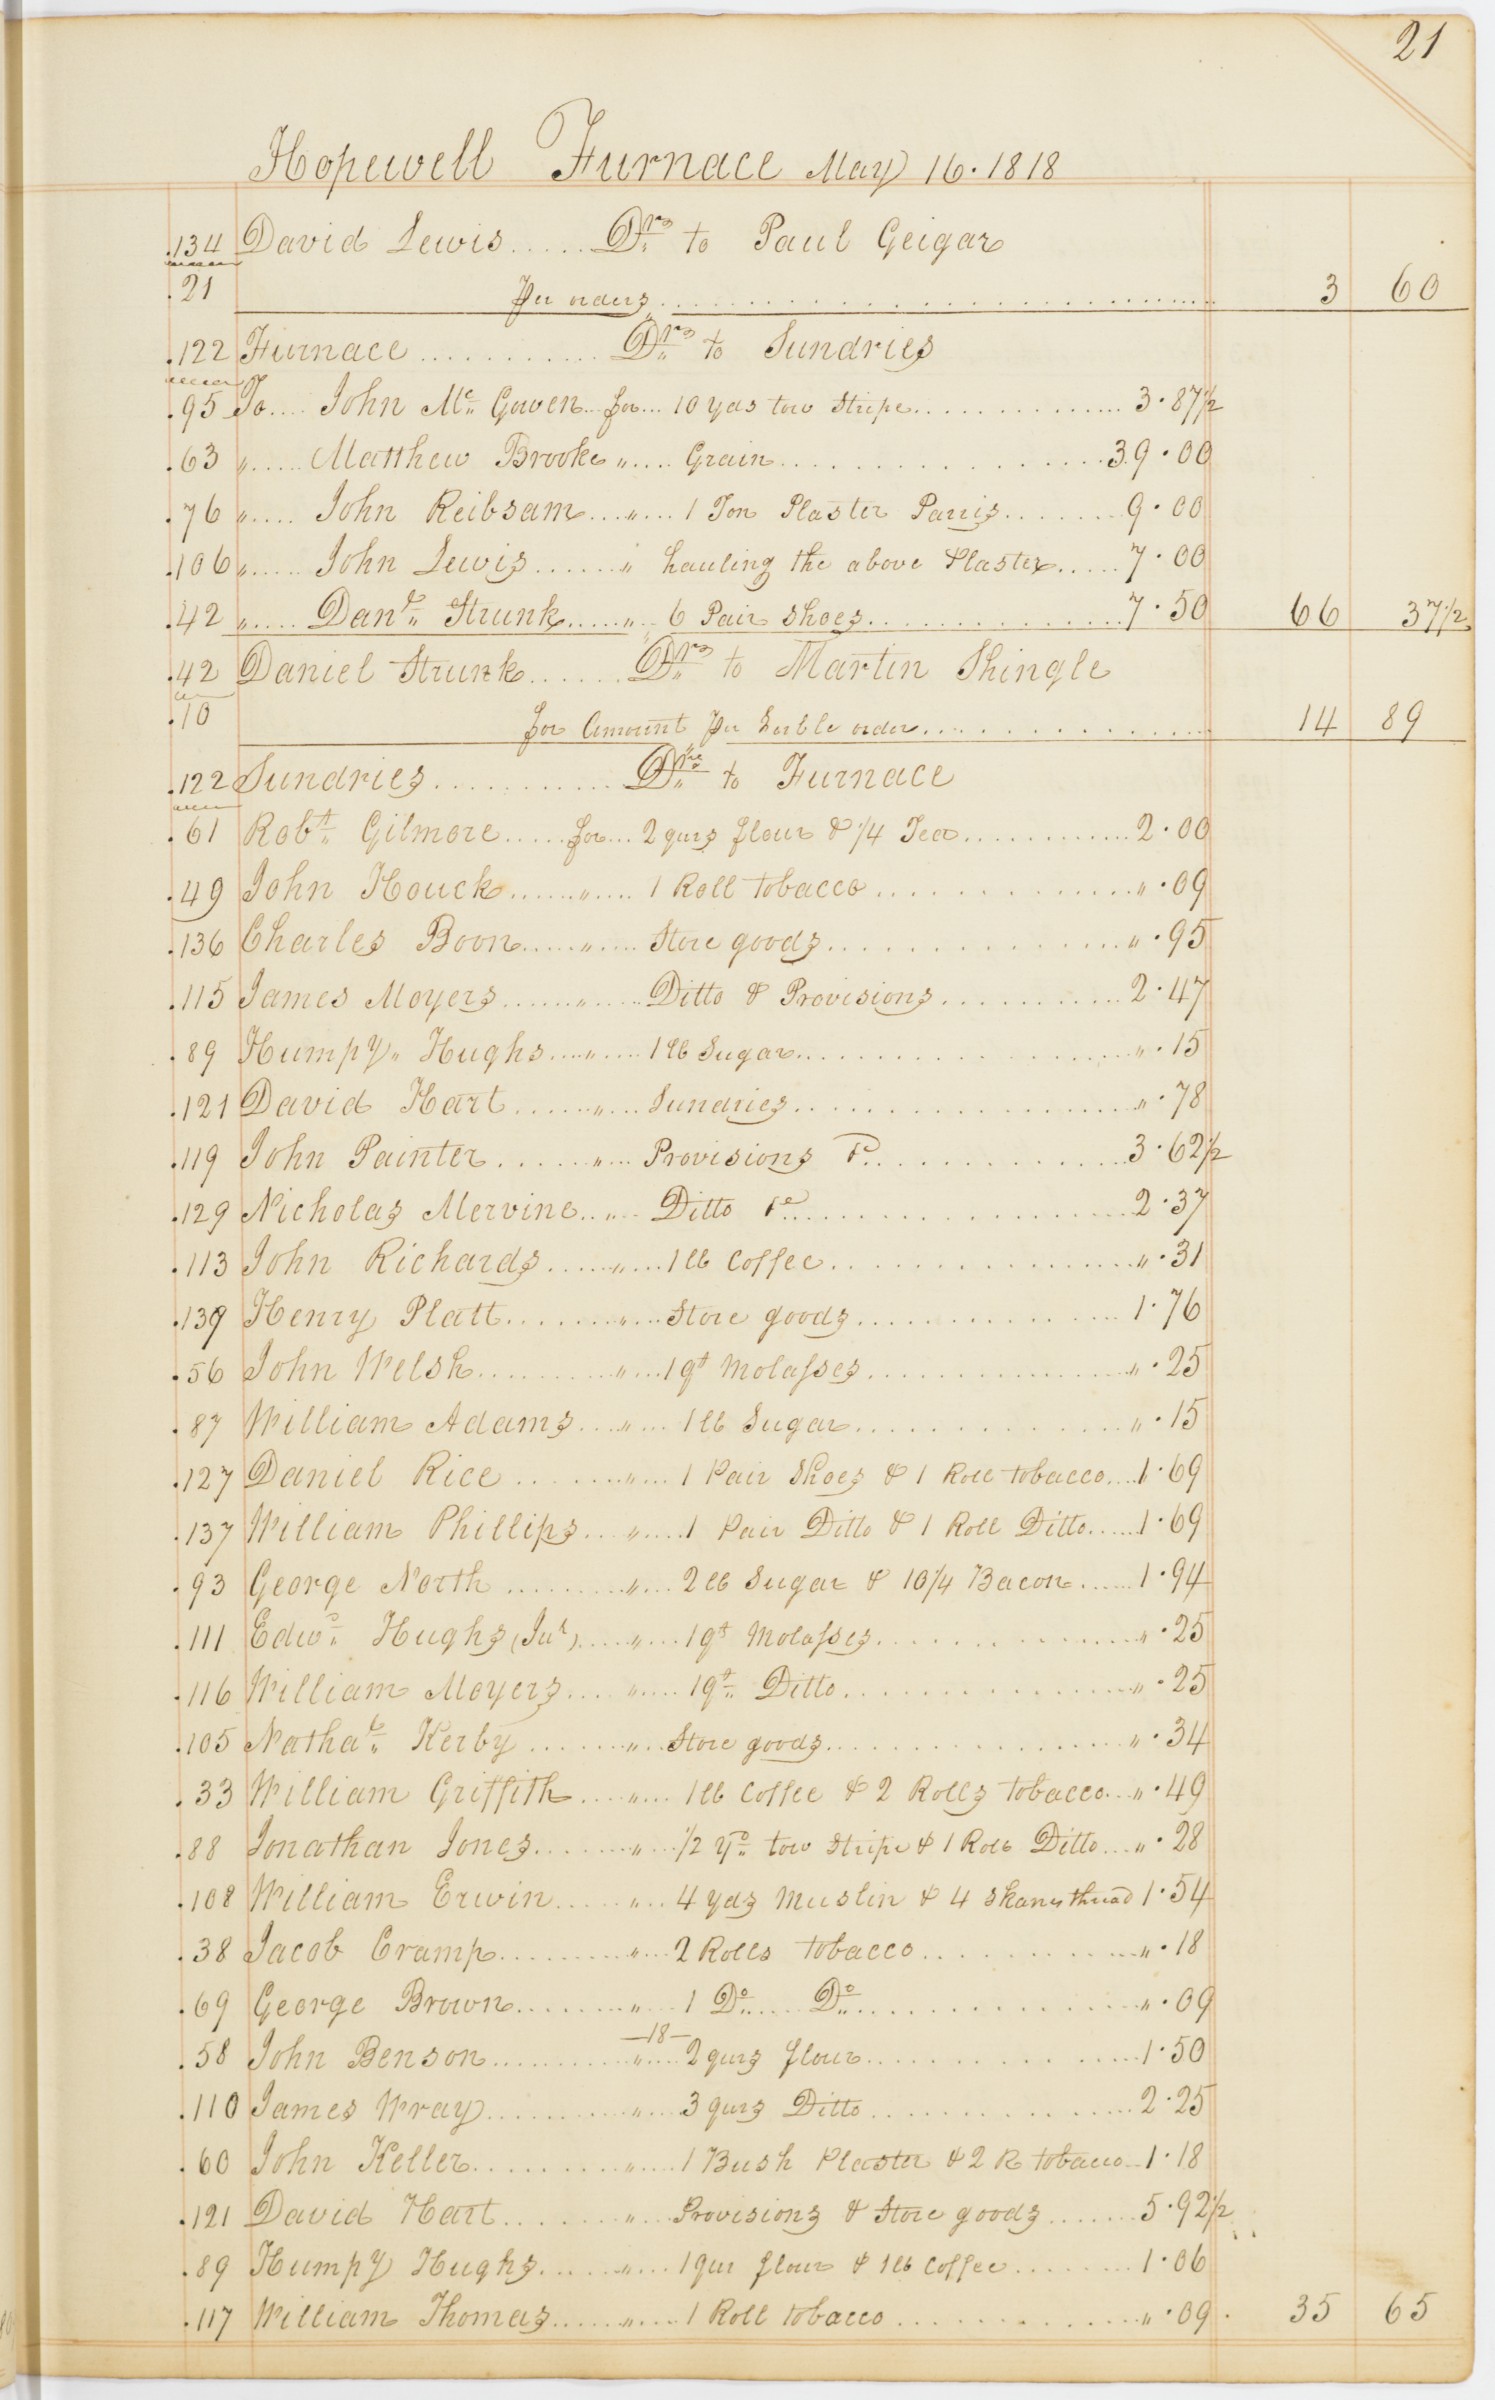 21
Hopewell Furnace May 16. 1818
.134 David Lewis ..... Drs to Paul Geigar
.21 Per orders ..... 3 60
.122 Furnace ..... Drs to Sundries
.95 To .... John Mc Gowen .. for ... 10 yds tow Stripe ..... 3.87 1/2
.63 " ..... Matthew Brooke " .... Grain ..... 39.00
.76 " ..... John Reibsam ... " ... 1 Ton Plaster Parris ..... 9.00
.106 " ..... John Lewis ..... " hauling the above Plaster ..... 7.00
.42 " ..... Danl Strunk ..... " .. 6 Pair Shoes ..... 7.50 66 37 1/2
.42 Daniel Strunk ..... Drs to Martin Shingle
.10 for Amount Per Verble order ..... 14 89
.122 Sundries ..... Drs to Furnace
.61 Robt Gilmore ..... for ... 2 qurs flour & 1/4 Tea ..... 2.00
.49 John Houck ..... " .... 1 Roll tobacco ..... " .09
.136 Charles Boon ..... " .... Store goods ..... " .95
.115 James Moyers ..... " .... Ditto & Provisions ..... 2.47
.89 Humpy Hughs .... " .... 1 lb Sugar ..... " .15
.121 David Hart ..... " ... Sundries ..... " .78
.119 John Painter ..... " ... Provisions &c ..... 3.62 1/2
.129 Nicholas Mervine .. " .. Ditto &c ..... 2.37
.113 John Richards ..... " ... 1 lb Coffee ..... " .31
.139 Henry Platt ..... " ... Store goods ..... 1.76
.56 John Welsh ..... " ... 1 qt Molasses ..... " .25
.87 William Adams ... " ... 1 lb Sugar ..... " .15
.127 Daniel Rice ..... " ... 1 Pair Shoes & 1 Roll tobacco .... 1.69
.137 William Phillips ... " .... 1 Pair Ditto & 1 Roll Ditto ..... 1.69
.93 George North ..... " ... 2 lb Sugar & 10 1/4 Bacon ..... 1.94
.111 Edwd Hughs (Jur) .... " ... 1 qt Molasses ..... " .25
.116 William Moyers .... " .... 1 qt Ditto ..... " .25
.105 Nathal Kerby ..... " .. Store goods ..... " .34
.33 William Griffith .... " ... 1 lb Coffee & 2 Rolls tobacco .. " .49
.88 Jonathan Jones ..... " ... 1/2 yd tow Stripe & 1 Roll Ditto ... " .28
.108 William Erwin ..... " ... 4 yds Muslin & 4 Skans thread 1.54
.38 Jacob Cramp ..... " ... 2 Rolls tobacco ..... " .18
.69 George Brown ..... " .... 1 Do .... Do ..... " .09
—18—
.58 John Benson ..... " .... 2 qurs flour ..... 1.50
.110 James Wray ..... " .... 3 qurs Ditto ..... 2.25
.60 John Keller ..... " .... 1 Bush Plaster & 2 R tobacco .. 1.18
.121 David Hart ..... " ... Provisions & Store goods ..... 5.92 1/2
.89 Humpy Hughs ..... " ... 1 qur flour & 1 lb Coffee ..... 1.06
.117 William Thomas ..... " .... 1 Roll tobacco ..... " .09 . 35 65